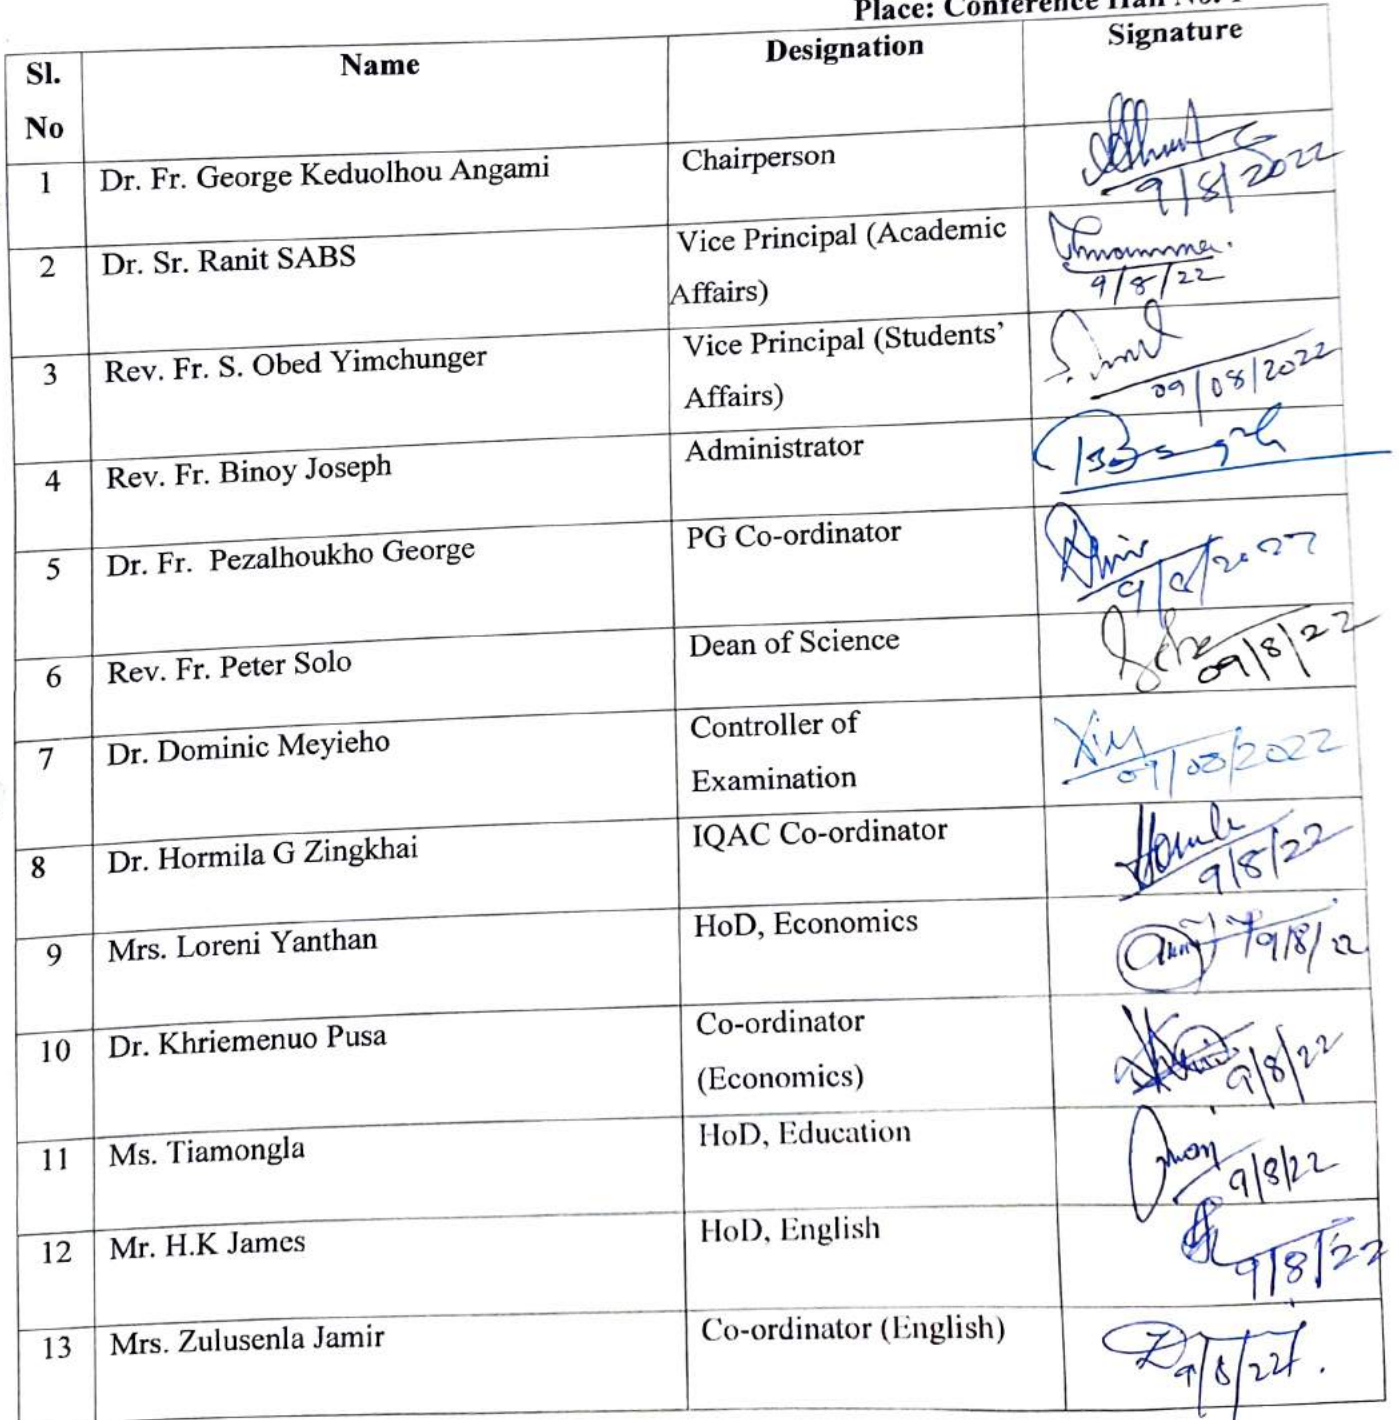 Place: Conference Hall No. 1
Sl. No Name Designation Signature
1 Dr. Fr. George Keduolhou Angami Chairperson 9/8/2022
2 Dr. Sr. Ranit SABS Vice Principal (Academic Affairs) 9/8/22
3 Rev. Fr. S. Obed Yimchunger Vice Principal (Students' Affairs) 09/08/2022
4 Rev. Fr. Binoy Joseph Administrator
5 Dr. Fr. Pezalhoukho George PG Co-ordinator
6 Rev. Fr. Peter Solo Dean of Science 09/8/22
7 Dr. Dominic Meyieho Controller of Examination 09/08/2022
8 Dr. Hormila G Zingkhai IQAC Co-ordinator 9/8/22
9 Mrs. Loreni Yanthan HoD, Economics 9/8/22
10 Dr. Khriemenuo Pusa Co-ordinator (Economics) 9/8/22
11 Ms. Tiamongla HoD, Education 9/8/22
12 Mr. H.K James HoD, English 9/8/22
13 Mrs. Zulusenla Jamir Co-ordinator (English) 9/8/22